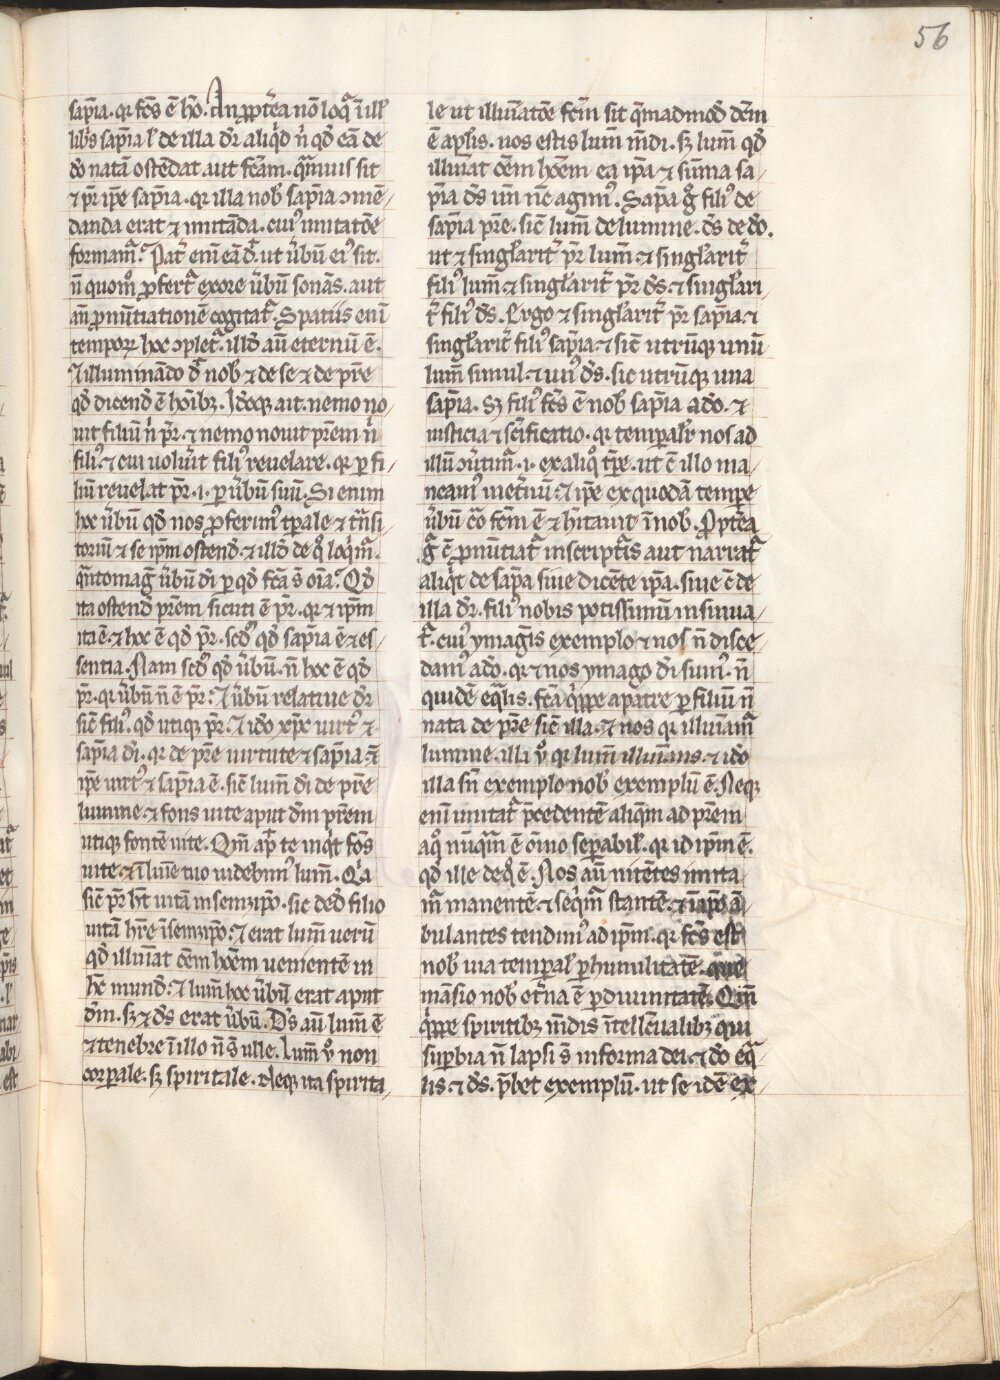 56
sap̄ia. qr fc̄s ē hō. An ꝓpt̄ea nō loq̄ᷓ ī ill'
libs̄ sap̄ia l' de illa dr̄ aliq̇d n̄ qd̄ eā de
dō natā ostēdat aut fc̄am. q̄muis sit
⁊ pr̄ ip̄e sap̄ia. qr illa nob̄ sap̄ia ꝯmē-
danda erat ⁊ imitāda. cui⁹ imitatōe
formam̄. Pat̄ eni eā d̄. ut v̄bū ei⁹ sit.
n̄ quom̊ ꝓfert̄ ex ore v̄bū sonās. aut
an̄ ꝓnūtiationē cogitat̄. Spatiis enī
tempoꝝ hoc ꝯplet̄. illd̄ aū eternū ē.
⁊ illuminādo d̄ nob̄ ⁊ de se ⁊ de pr̄e
qd̄ dicend̄ ē hōibꝫ. Idōqꝫ ait. nemo no-
uit filiū n̄ pr̄. ⁊ nemo nouit pr̄em n̄
fili⁹. ⁊ cui uolūit fili⁹ reuelare. qr ꝑ fi-
liū reuelat pr̄. i. ꝑ v̄bū suū. Si enim
hoc v̄bū qd̄ nos ꝓferim⁹ tp̄ale ⁊ t̄nsi-
toriū ⁊ se ip̄m ostend̄. ⁊ illd̄ de q̊ loq̄m̄.
q̄ntomaḡ v̄bū dī ꝑ qd̄ fc̄a s̄ oīa. Qd̄
ita ostend̄ pr̄em sicuti ē pr̄. qr ⁊ ip̄m
ita ē. ⁊ hoc ē qd̄ pr̄. scd̄⁹ qd̄ sap̄ia ē ⁊ es-
sentia. Nam scd̄⁹ qd̄ v̄bū. n̄ hoc ē qd̄
pr̄. qr v̄bū n̄ ē pr̄. ⁊ v̄bū relatiue dr̄
sic̄ fili⁹. qd̄ utiqꝫ pr̄. ⁊ idō xp̄c uirt⁹ ⁊
sap̄ia dī. qr de pr̄e uirtute ⁊ sap̄ia. ⁊
ip̄e uirt⁹ ⁊ sap̄ia ē. sic̄ lum̄ dī de pr̄e
lumine. ⁊ fons uite aput dm̄ pr̄em
utiqꝫ fontē uite. Qm̄ ap̄ te inq̇t fōs
uite. ⁊ ī lūīe tuo uidebim⁹ lum̄. Qa
sic̄ pr̄ ht̄ uitā in semꝫip̄o. sic ded̄ filio
uitā hr̄e ī semꝫip̄o. ⁊ erat lum̄ uerū
qd̄ illuīat ōem hōem uenientē in
hc̄ mund̄. ⁊ lum̄ hoc v̄bū erat aput
dm̄. sꝫ ⁊ ds̄ erat v̄bū. Ds̄ aū lum̄ ē
⁊ tenebre ī illo n̄ s̄ ulle. Lum̄ v̊ non
corꝑale. sꝫ spiritale. Neqꝫ ita spirita-
le ut illuīatōe fc̄m sit q̄madmod̄ dc̄m
ē aplīs. uos estis lum̄ mīdi. sꝫ lum̄ qd̄
illuīat ōem hōem ea ip̄a ⁊ sūma sa-
p̄ia ds̄ un̄ nc̄ agim⁹. Sap̄a g̊ fili⁹ de
sap̄ia pr̄e. sic̄ lum̄ de lumine. ds̄ de dō.
ut ⁊ singl'arit̄ pr̄ lum̄. ⁊ singl'arit̄
fili⁹ lum̄. ⁊ singl'arit̄ pr̄ ds̄. ⁊ singl'ari-
t̄ fili⁹ ds̄. Ergo ⁊ singl'arit̄ pr̄ sap̄ia. ⁊
singl'arit̄ fili⁹ sap̄ia. ⁊ sic̄ utrūqꝫ unū
lum̄ simul. ⁊ un⁹ ds̄. sic utrūqꝫ una
sap̄ia. Sꝫ fili⁹ fc̄s ē nob̄ sap̄ia a dō. ⁊
iusticia ⁊ sc̄ificatio. qr tempalr̄ nos ad
illū ꝯu̇tim̄. i. ex aliq̊ tp̄e. ut c̄ illo ma-
neam⁹ inet̄nū. ⁊ ip̄e ex quodā tempe
v̄bū caro fc̄m ē ⁊ hītauit ī nob̄. Ꝓpt̄ea
g̊ c̄ ꝓnūtiat̄ in scriptīs aut narrat̄
aliq̇t de sap̄a siue dicēte ip̄a. siue c̄ de
illa dr̄. fili⁹ nobis potissimū insinua-
t̄. cui⁹ ymaḡis exemplo ⁊ nos n̄ disce-
dam⁹ a dō. qr ⁊ nos ymago dī sum⁹. n̄
quidē eq̄lis. fc̄a q̇ppe a patre ꝑ filiū n̄
nata de pr̄e sic̄ illa. ⁊ nos qr illuīam̄
lumine. illa v̊ qr lum̄ illuīans. ⁊ idō
illa sn̄ exemplo nob̄ exemplū ē. Neqꝫ
enī imitat̄ p̄cedentē aliq̄m ad pr̄em
a q̊ nūq̄m ē oīno sepabil'. qr id ip̄m ē.
qd̄ ille de q̊ ē. Nos aū nitētes imita-
m̄ manentē. ⁊ seq̄m̄ stantē. ⁊ ī ip̄o ā-
bulantes tendim⁹ ad ip̄m. qr fc̄s est
nob̄ uia tempal' ꝑ humilitatē. que
māsio nob̄ et̄na ē ꝑ diuinitatē. Qm̄
q̇ppe spiritibꝫ mīdis ītellc̄ualibꝫ qui
suꝑbia n̄ lapsi s̄ in forma dei. ⁊ dō eq̄-
lis. ⁊ ds̄. p̄bet exemplū. ut se idē ex-